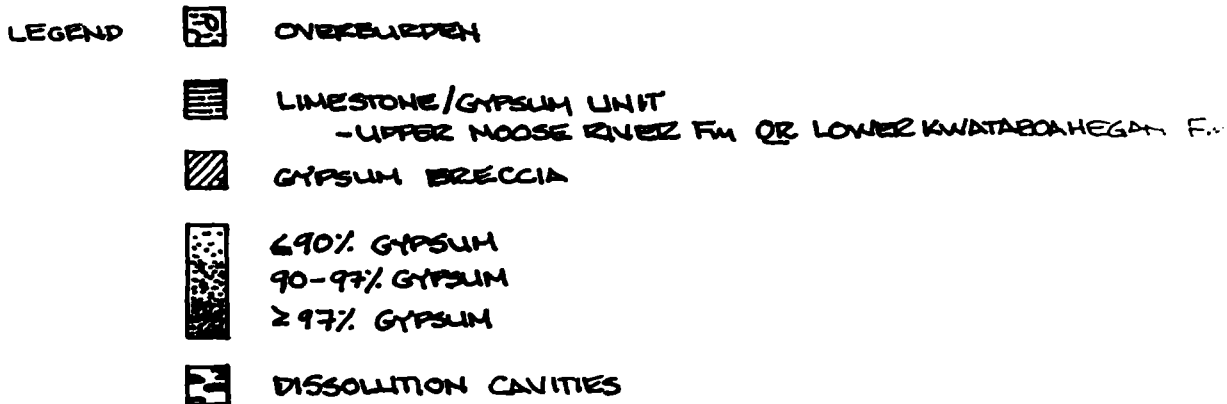 LEGEND OVERBURDEN
LIMESTONE/GYPSUM UNIT
-UPPER MOOSE RIVER Fm OR LOWER KWATABOAHEGAN F...
GYPSUM BRECCIA
≤90% GYPSUM
90-97% GYPSUM
≥97% GYPSUM
DISSOLUTION CAVITIES